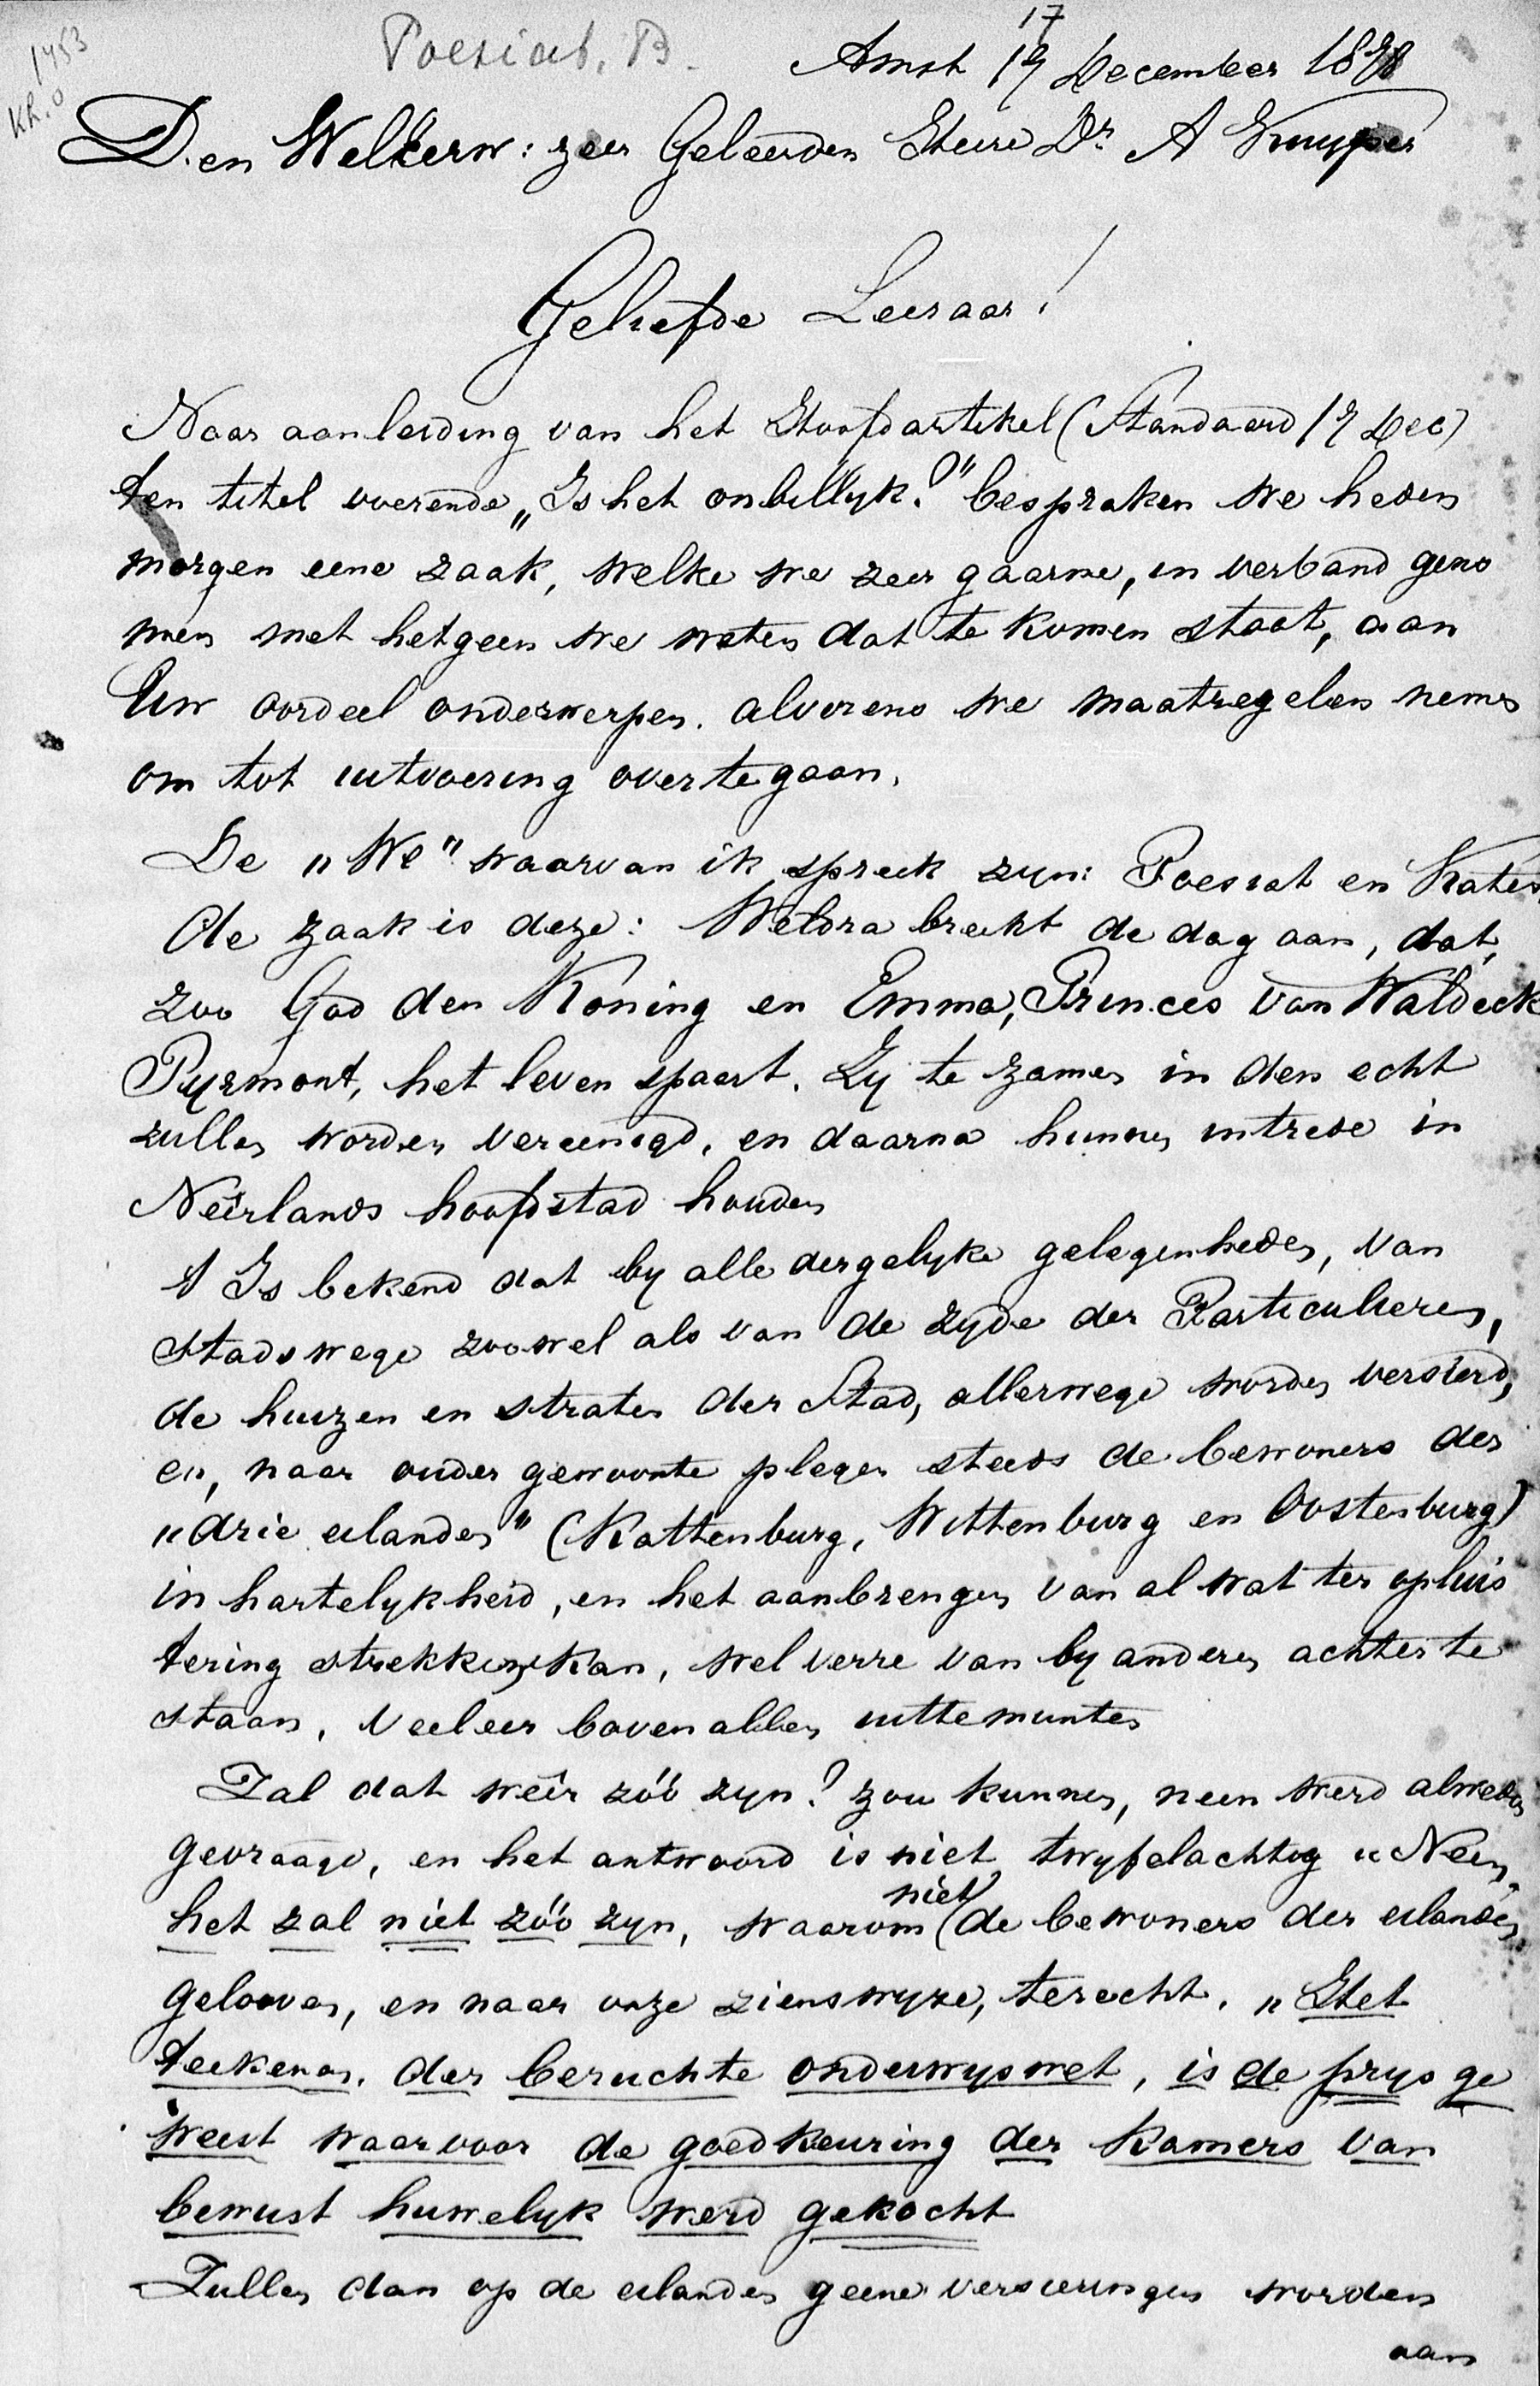 1453
KR. O
Poesiat, B.
17
Amst 17 December 1878
Den WelEerw: zeer Geleerden Heere Dr A Kuyper
Geliefde Leeraar!
Naar aanleiding van het Hoofdartikel (Standaard 17 Dec)
ten titel voerende „Is het onbillyk?" bespraken we heden
morgen eene zaak, welke we zeer gaarne, in verband geno
men met hetgeen we weten dat te komen staat, aan
Uw oordeel onderwerpen. alvorens we maatregelen nemen
om tot uitvoering over te gaan.
De „We" waarvan ik spreek zyn: Poesiat en Kater,
De zaak is deze: Weldra breekt de dag aan, dat,
zoo God den Koning en Emma, Princes van Waldeck
Pyrmont, het leven spaart. Zy te zamen in den echt
zullen worden vereenigd, en daarna hunnen intrede in
Neêrlands hoofdstad houden
't Is bekend dat by alle dergelyke gelegenheden, van
stadswege zoowel als van de zyde der Particulieren,
de huizen en straten der Stad, allerwege worden versierd,
en, naar ouder gewoonte plegen steeds de bewoners der
„drie eilanden" (Kattenburg, Wittenburg en Oostenburg)
in hartelykheid, en het aanbrengen van al wat ter opluis
tering strekken kan, wel verre van by anderen achter te
staan, veeleer boven allen uittemunten
Zal dat weêr zóó zyn? zou kunnen, neen werd alweder
gevraagd, en het antwoord is niet twyfelachtig „Neen,
het zal niet zóó zyn, waarom niet (de bewoners der eilanden
gelooven, en naar onze zienswyze, terecht. „Het
teekenen. der beruchte onderwyswet, is de prys ge
weest waarvoor de goedkeuring der Kamers van
bewust huwelyk werd gekocht
Zullen dan op de eilanden geene versieringen worden
aan